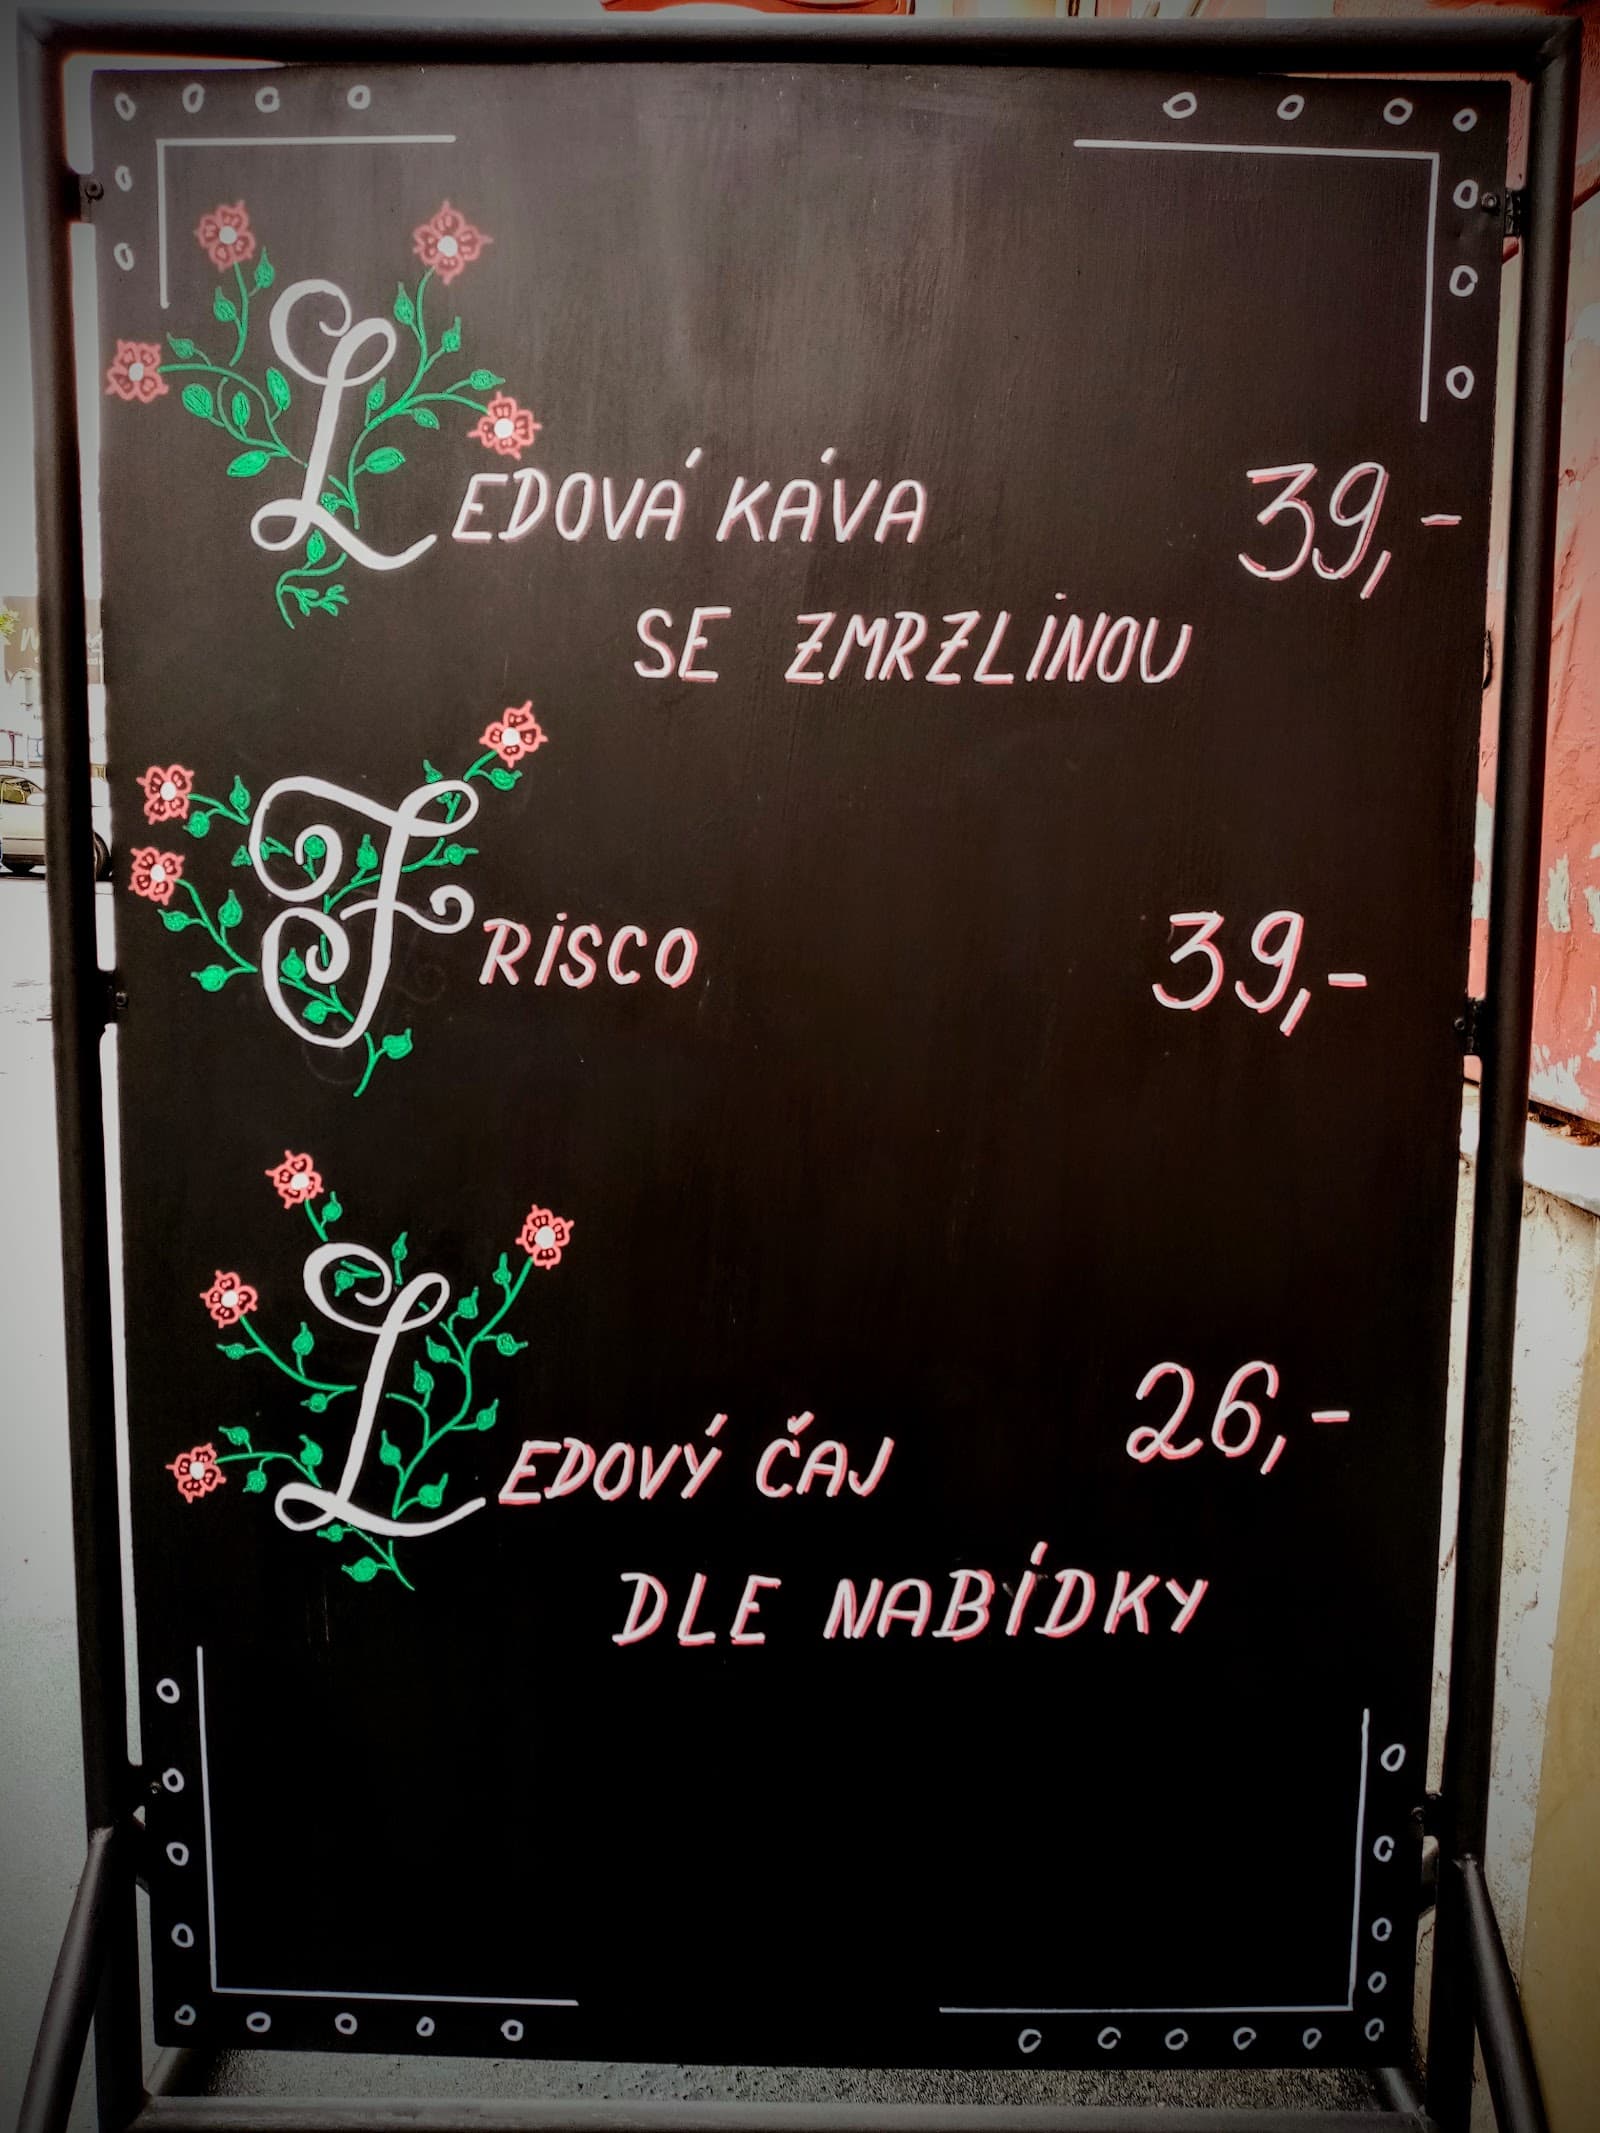 LEDOVÁ KÁVA 39,-
SE ZMRZLINOU
FRISCO 39,-
LEDOVÝ ČAJ 26,-
DLE NABÍDKY